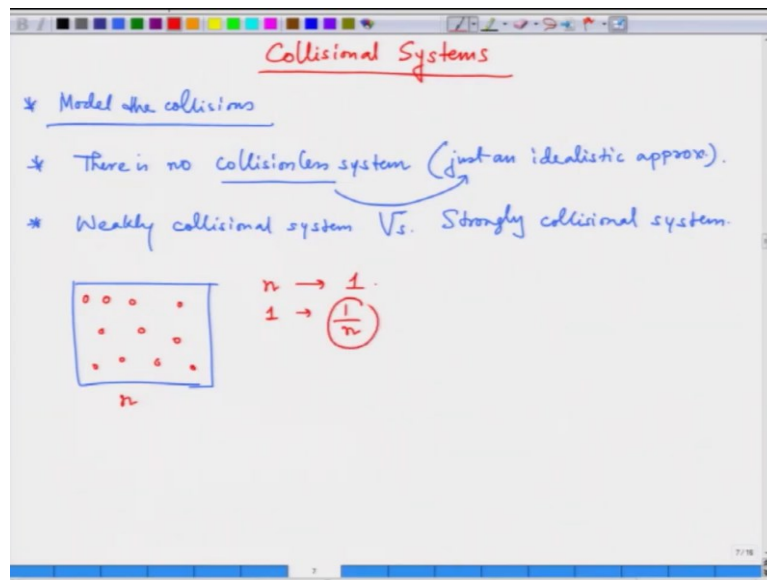 Collisional Systems
* Model the collisions
* There is no collisionless system (just an idealistic approx.).
* Weakly collisional system Vs. Strongly collisional system.
n → 1.
1 → 1/n
n
7/18
7